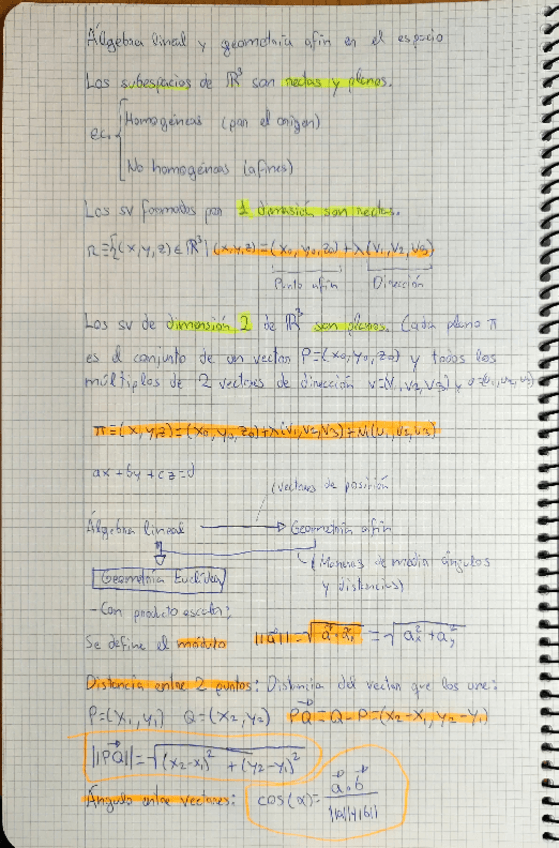 Álgebra lineal y geometría afín en el espacio
Los subespacios de ℝ³ son rectas y planos.
ec. { Homogéneas (por el origen)
No homogéneas (afines)
Los sv formados por 1 dimensión son rectas.
r ≡ {(x, y, z) ∈ ℝ³ | (x, y, z) = (x₀, y₀, z₀) + λ(v₁, v₂, v₃)
Punto afín Dirección
Los sv de dimensión 2 de ℝ³ son planos. Cada plano π
es el conjunto de un vector P=(x₀, y₀, z₀) y todos los
múltiplos de 2 vectores de dirección v=(v₁, v₂, v₃) y
π ≡ (x, y, z) = (x₀, y₀, z₀) + λ(v₁, v₂, v₃) + μ(u₁, u₂, u₃)
ax + by + cz = d
(vectores de posición
Álgebra lineal → Geometría afín
(Maneras de medir ángulos
y distancias)
Geometría Euclídea
- Con producto escalar;
Se define el módulo ||a⃗|| = √a⃗·a⃗ = √aₓ² + aᵧ²
Distancia entre 2 puntos: Distancia del vector que los une:
P=(x₁, y₁) Q=(x₂, y₂) P⃗Q = Q - P = (x₂-x₁, y₂-y₁)
||P⃗Q|| = √(x₂-x₁)² + (y₂-y₁)²
Ángulo entre vectores: cos(α) = a⃗·b⃗ / ||a||·||b||